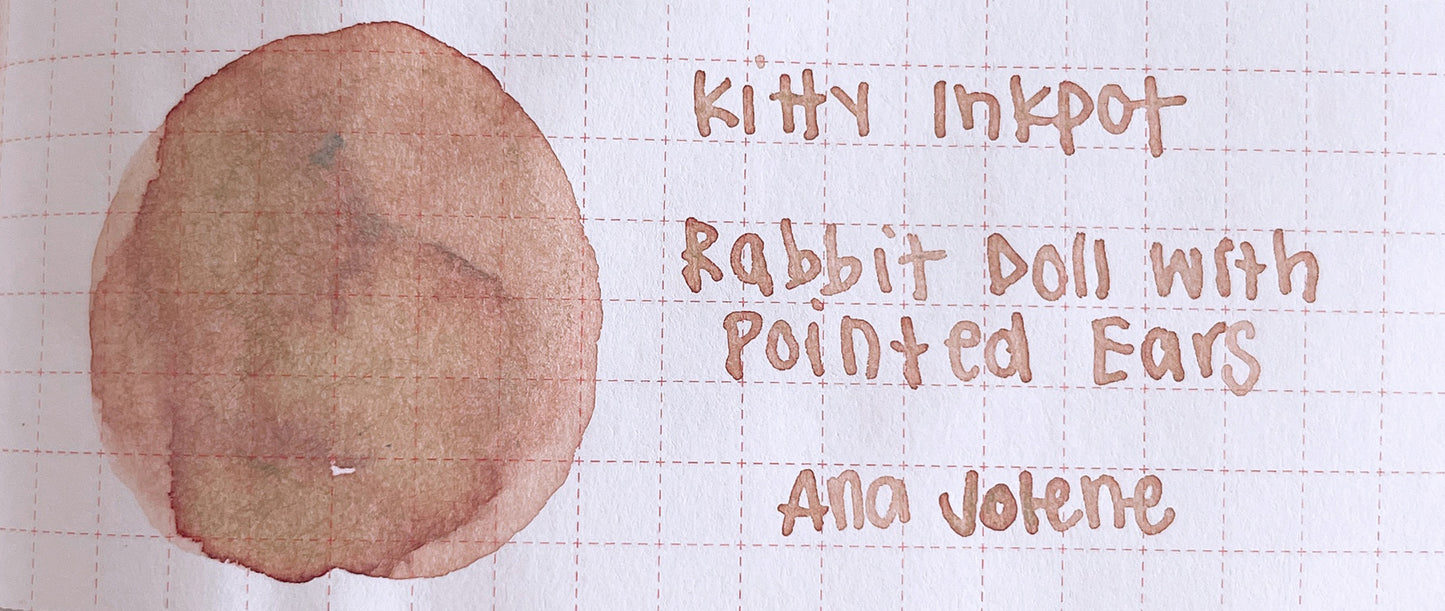 Kitty Inkpot
Rabbit Doll with
Pointed Ears
Ana Jolene